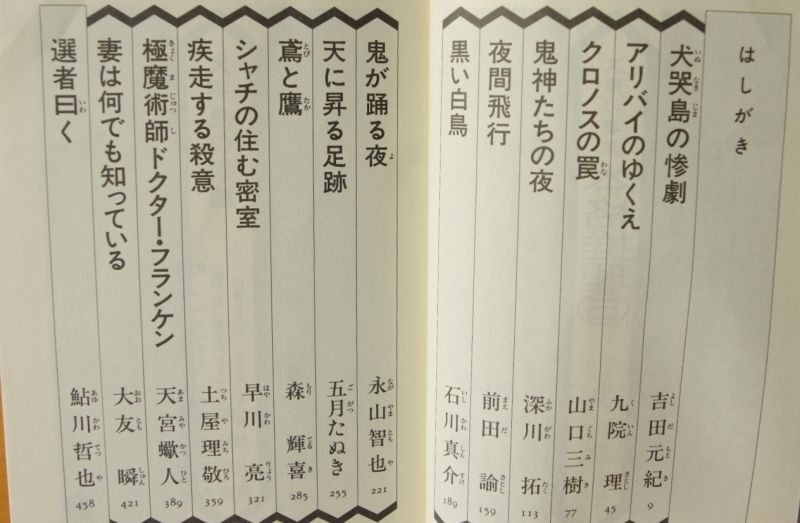 はしがき
犬哭島の惨劇 吉田元紀 9
アリバイのゆくえ 九院理 45
クロノスの罠 山口三樹 77
鬼神たちの夜 深川拓 113
夜間飛行 前田諭 159
黒い白鳥 石川真介 189
鬼が踊る夜 永山智也 221
天に昇る足跡 五月たぬき 255
鳶と鷹 森輝喜 285
シャチの住む密室 早川亮 321
疾走する殺意 土屋理敬 359
極魔術師ドクター・フランケン 天宮蠍人 389
妻は何でも知っている 大友瞬 421
選者曰く 鮎川哲也 458